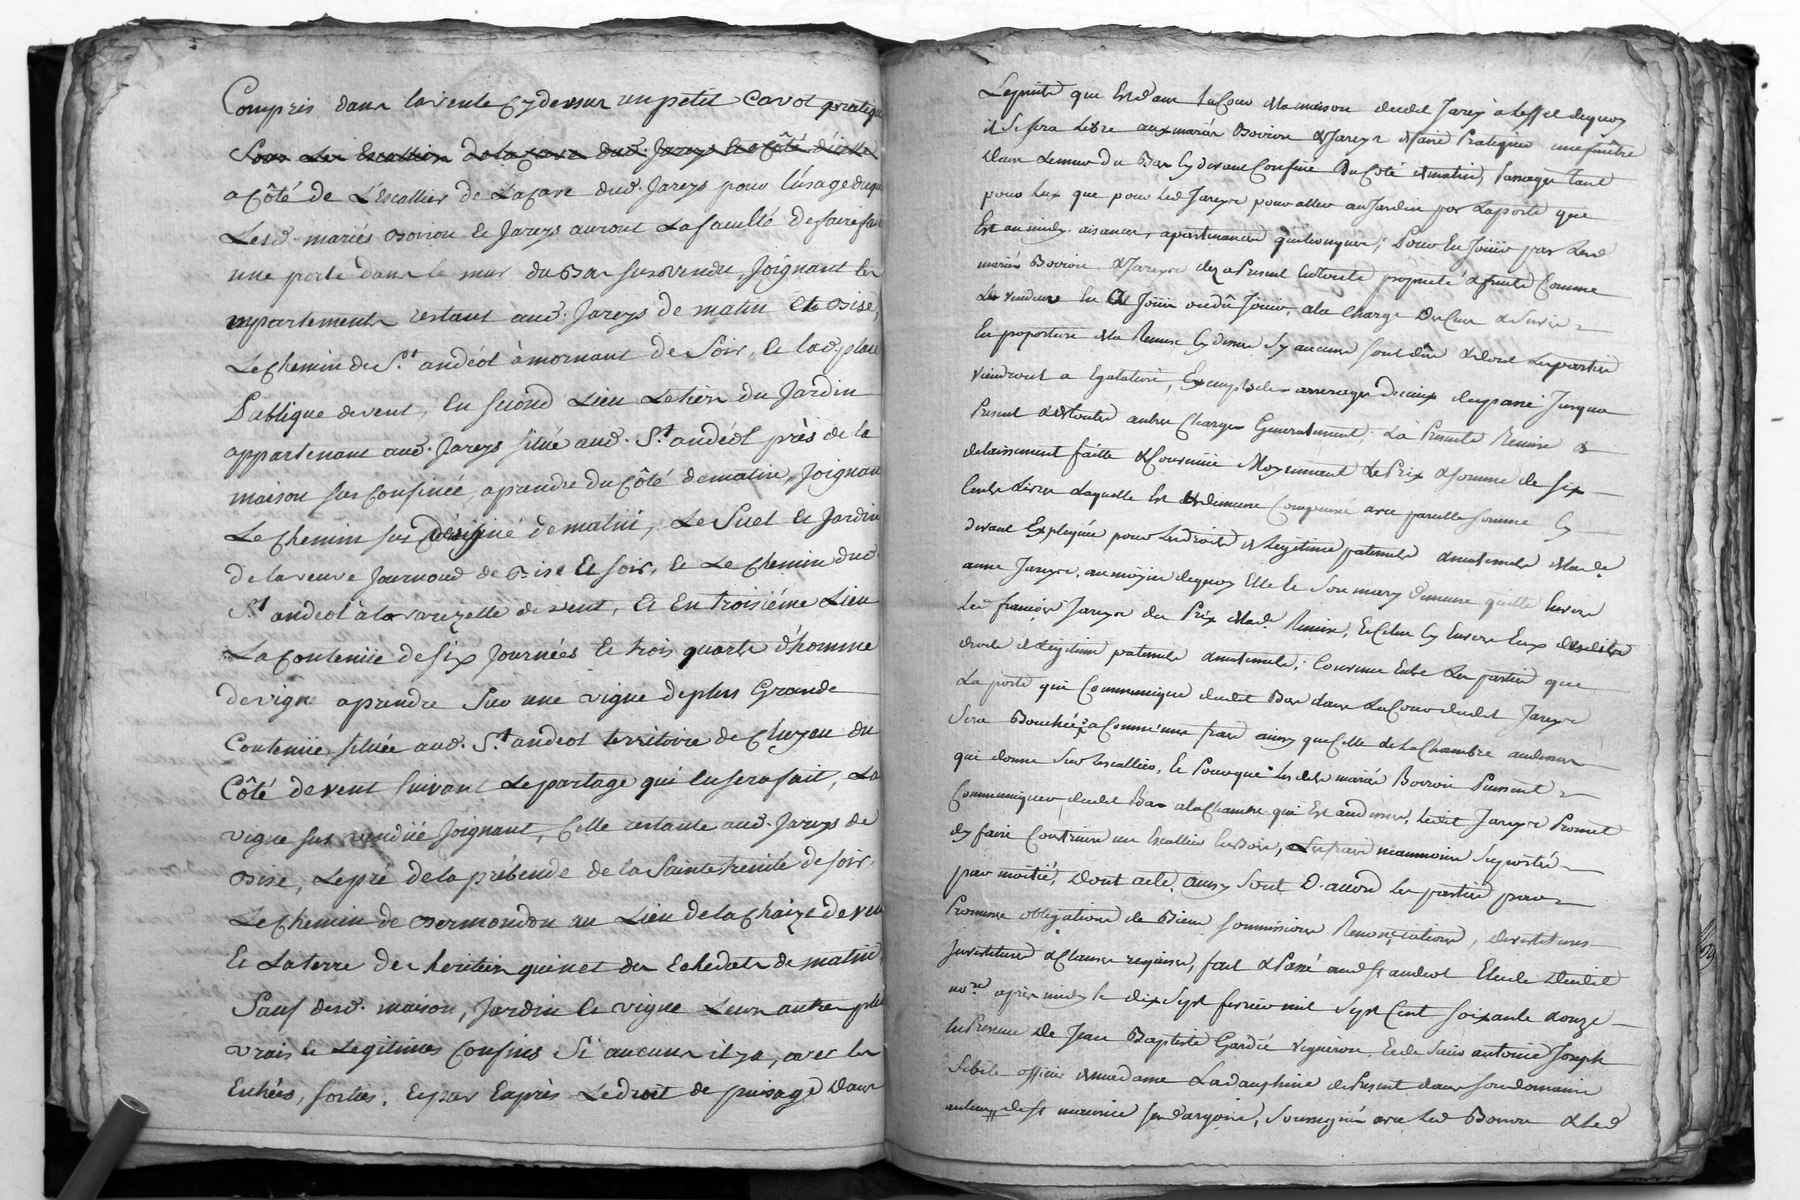 Compris dans la vente cydessus un petit Cavot pratiqu
Sous les Escalliers de la Cave dud. Jareys
a Côté de L'Escallier de La Cave dud. Jareys pour l'usage duquel
Lesd. mariés Borron et Jareys auront La faculté de faire faire
une porte dans le mur du Bas sus vendu, Joignant les
appartements restant aud. Jareys de matin et Bise,
Le Chemin de St. andéol à mornant de Soir, et lad. place
Publique de vent; En second Lieu Le tiers du Jardin
appartenant aud. Jareys situé aud. St. andéol près de la
maison sus Confinée, a prendre du Côté de matin, Joignant
Le Chemin sus désigné de matin, Le Suel et Jardin
de la veuve Journoud de Bise et soir, et Le Chemin dud.
St. andéol à la varezelle de vent, et En troisiéme Lieu
La Contenüe de six Journées et trois quarts d'homme
de vigne a prendre Sur une vigne de plus Grande
Contenüe, située aud. St. andeol territoire de Chuzeu du
Côté de vent suivant Le partage qui en sera fait, La
vigne sus vendüe Joignant, Celle restante aud. Jareys de
Bise, La de la prébende de la Sainte trenité de soir,
Le Chemin de Bermondon au Lieu de la Chaize de vent
Et La terre des heritiers quinet des Echedats de matin,
Sauf desd. maison, Jardin et vigne Leurs autres plus
vrais et Legitimes Confins Si aucuns il y a, avec les
Entrées, sorties, Et par Exprès Le droit de puisage dans
Le puits qui Est dans la Cour de la maison dudit Jareys a L'effet de quoy
il Sera Libre aux mariés Borron et Jareys de faire Pratiquer une fenêtre
dans Le mur du Bas Cy devant Confiné du Côté de matin, Passage tant
pour Eux que pour Led. Jareys pour aller au Jardin par La porte qui
Est au midy, aisances, apartenances quelconques; Pour En Joüir par Lesd
mariés Borron et Jareys dez a Present En toute proprieté et fruits Comme
Le vendeur En a Joüi ou dû Joüir, a la Charge du Cens et Servis
En proportion de la Remise Cy dessus Sy aucuns sont dûs et dont Les parties
viendront a Egalation, Exempts des arrerages d'iceux du passé Jusqu'a
Present et de toutes autres Charges Generalement; La Presente Remise et
delaissement faitte et Convenüe Moyennant Le Prix et Somme de six
Cents Livres Laquelle Est demeurée Compensée avec pareille somme Cy
devant Expliquée pour Les droits de Legitime paternels et maternels de lad.
anne Jareys, au moyen de quoy Elle et Son mary demeure quitte Envers
Led. françois Jareys du Prix de lad. Remise, et Celui Cy Envers Eux desdits
droits de Legitime paternels et maternels; Convenu Entre Les parties que
La porte qui Communique dudit Bas dans La Cour dudit Jareys
Sera Bouchée a Communs frais ainsy que Celle de la Chambre au dessus
qui donne Sur Lescallier, et Pour que Lesdits mariés Borron Puissent
Communiquer dudit Bas a la Chambre qui Est au dessus, Ledit Jareys Promet
d'y faire Construire un Escallier En Bois, Les frais neanmoins Suportés
par moitié, dont acte, ainsy Sont D'acord les parties par
Promesse obligations de Biens soummissions Renonciations, devestitures
Investitures et Clauses requises, fait et Passé aud. St. andeol Etude dudit
nore. après midy le dix Sept fevrier mil Sept Cent soixante douze
En Presence de Jean Baptiste Gardié vigneron, Et de Sieur antoine Joseph
Sibile officier de madame La dauphine de Present dans Son domaine
de St. maurice Sur dargoire, Soussignés avec Led. Borron et Led